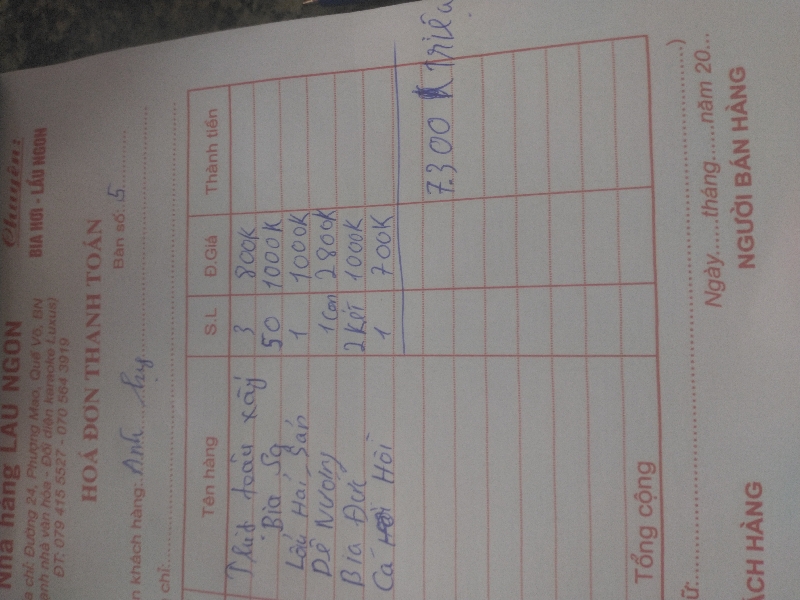 Nhà hàng LẨU NGON
Chuyên:
a chỉ: Đường 24, Phượng Mao, Quế Võ, BN
BIA HƠI - LẨU NGON
ạnh nhà văn hóa - Đối diện karaoke Luxus)
ĐT: 079 415 5527 - 070 564 3919
HOÁ ĐƠN THANH TOÁN
Bàn số: 5
n khách hàng: Anh
chỉ:
Tên hàng S.L Đ.Giá Thành tiền
xấy 3 800K
Bia Sg 50 1000K
Lẩu Hải Sản 1 1000K
Dê Nướng 1 con 2800K
Bia Đức 2 Két 1000K
Cá Hồi 1 700K
7.300 triệu
Tổng cộng
ữ: )
Ngày......tháng......năm 20...
ÁCH HÀNG
NGƯỜI BÁN HÀNG